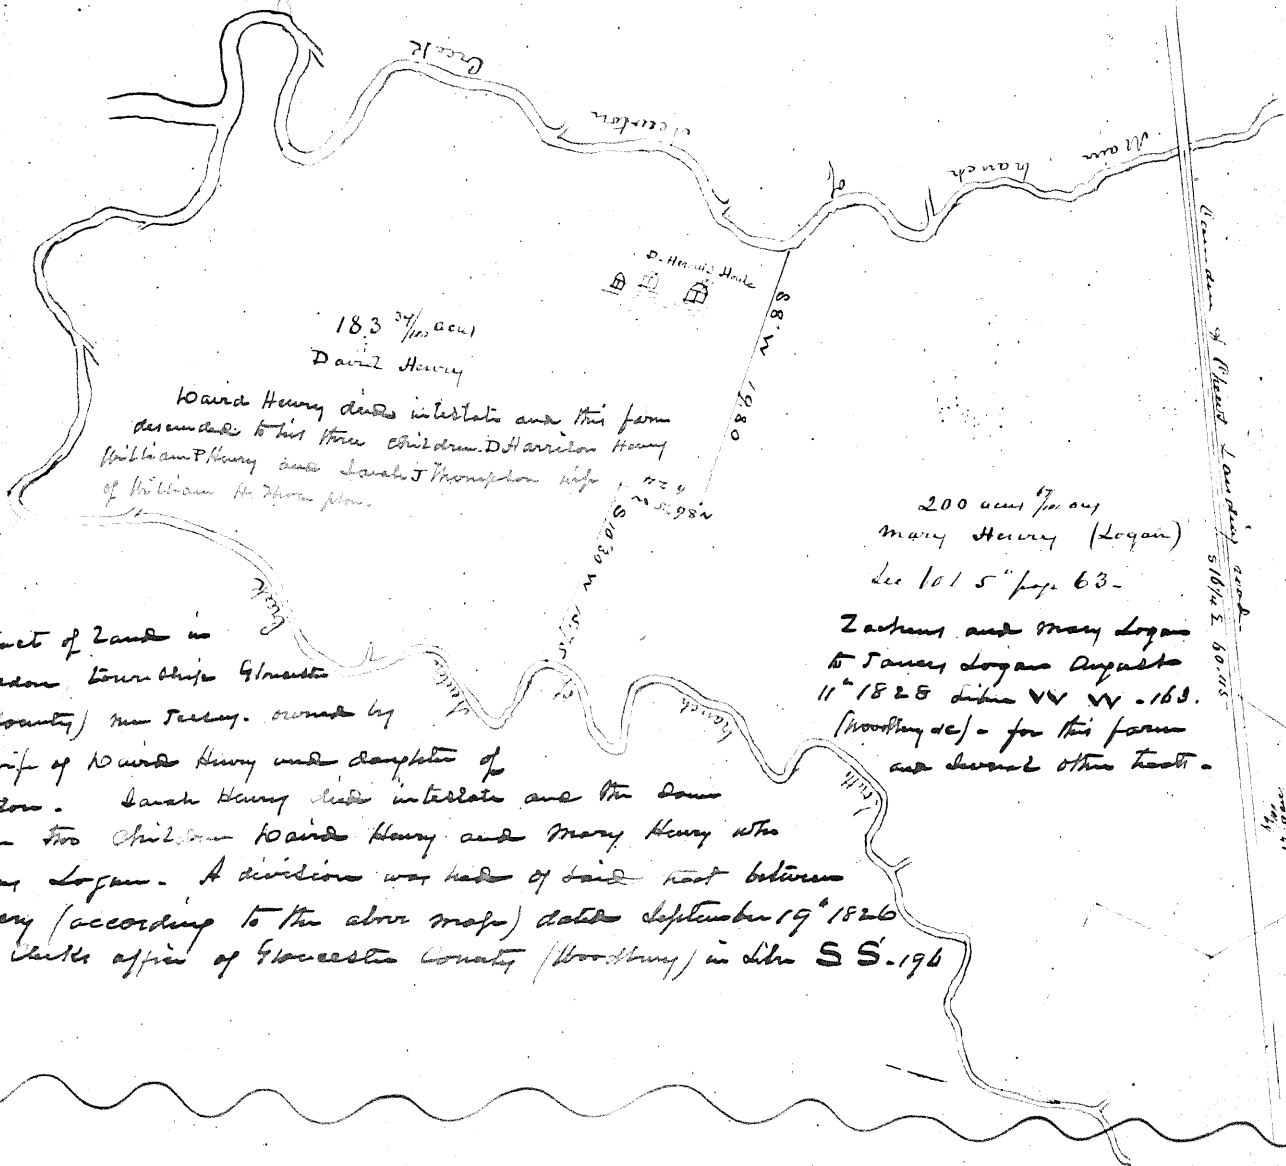 Creek
Newton
of
branch
Main
D. Henry's House
S 8. W 19.80
183 34/100 acres
David Henry
David Henry died intestate and this farm
descended to his three children. D Harrison Henry
William P Henry and Sarah J Thompson wife
of William H. Thompson.
S 10°30 W
Camden & Chews Landing road
S 18 1/4 E 60.115
200 acres /100 acres
Mary Henry (Logan)
See 101 5" page 63-
Zacheus and Mary Logan
to James Logan August
11" 1828 Liber W W - 163.
(Woodbury &c) - for this farm
and several other tracts -
Creek
Newton
of
branch
South
act of Land in
township Gloucester
County) New Jersey. owned by
wife of David Henry and daughter of
Sarah Henry died intestate and the same
two children David Henry and Mary Henry who
Logan - A division was had of said tract between
(according to the above map) dated September 19" 1826
Clerks office of Gloucester County (Woodbury) in Liber S S. 196